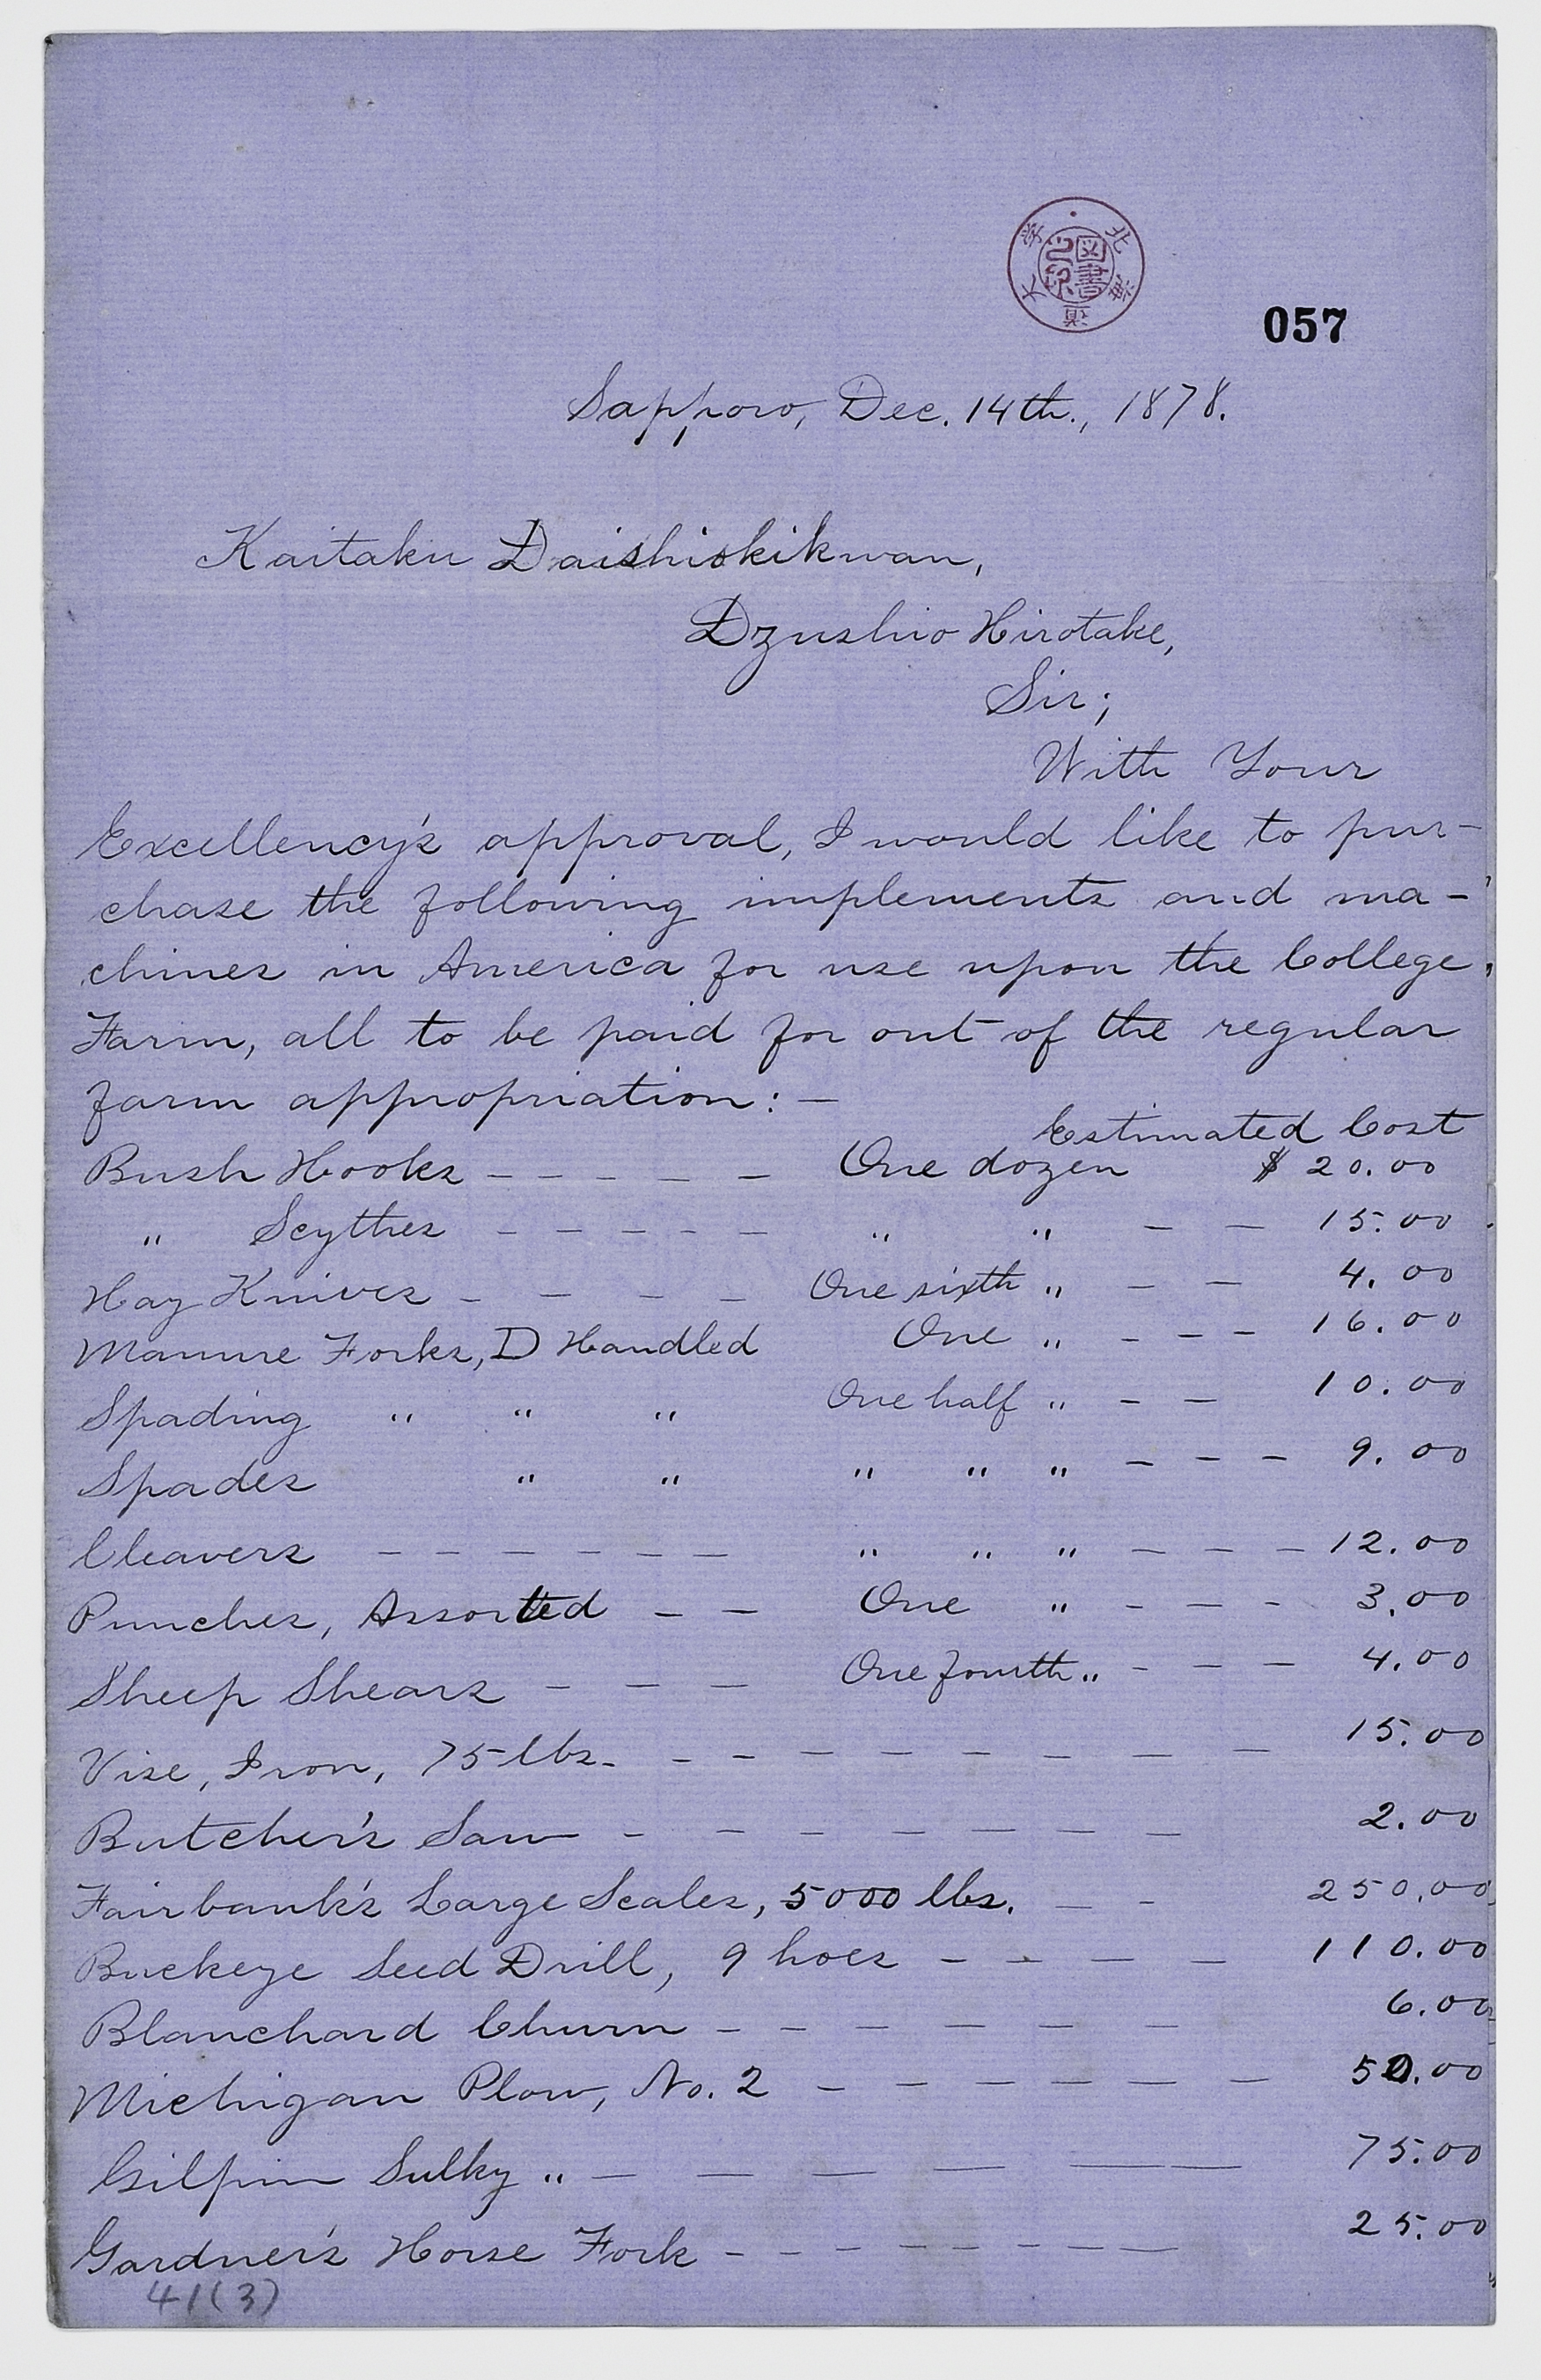 北海道大学
圖書之印
057
Sapporo, Dec. 14th., 1878.
Kaitaku Daishiokikwan,
Dzushio Hirotake,
Sir;
With Your
Excellency's approval, I would like to pur-
chase the following implements and ma-
chines in America for use upon the College
Farm, all to be paid for out of the regular
farm appropriation: —
Estimated Cost
Bush Hooks — — — — — One dozen $ 20.00
" Scythes — — — — — " " — — 15.00
Hay Knives — — — — One sixth " — — 4.00
Manure Forks, D Handled One " — — — 16.00
Spading " " " One half " — — 10.00
Spades " " " " " — — — 9.00
Cleavers — — — — — — " " " — — — 12.00
Punches, Assorted — — One " — — — 3.00
Sheep Shears — — — One fourth " — — — 4.00
Vise, Iron, 75 lbs. — — — — — — — — 15.00
Butcher's Saw — — — — — — — 2.00
Fairbank's Large Scales, 5000 lbs. — — 250.00
Buckeye Seed Drill, 9 hoes — — — — 110.00
Blanchard Churn — — — — — — 6.00
Michigan Plow, No. 2 — — — — — — 50.00
Gilpin Sulky " — — — — — — 75.00
Gardner's Horse Fork — — — — — — — — 25.00
41(3)